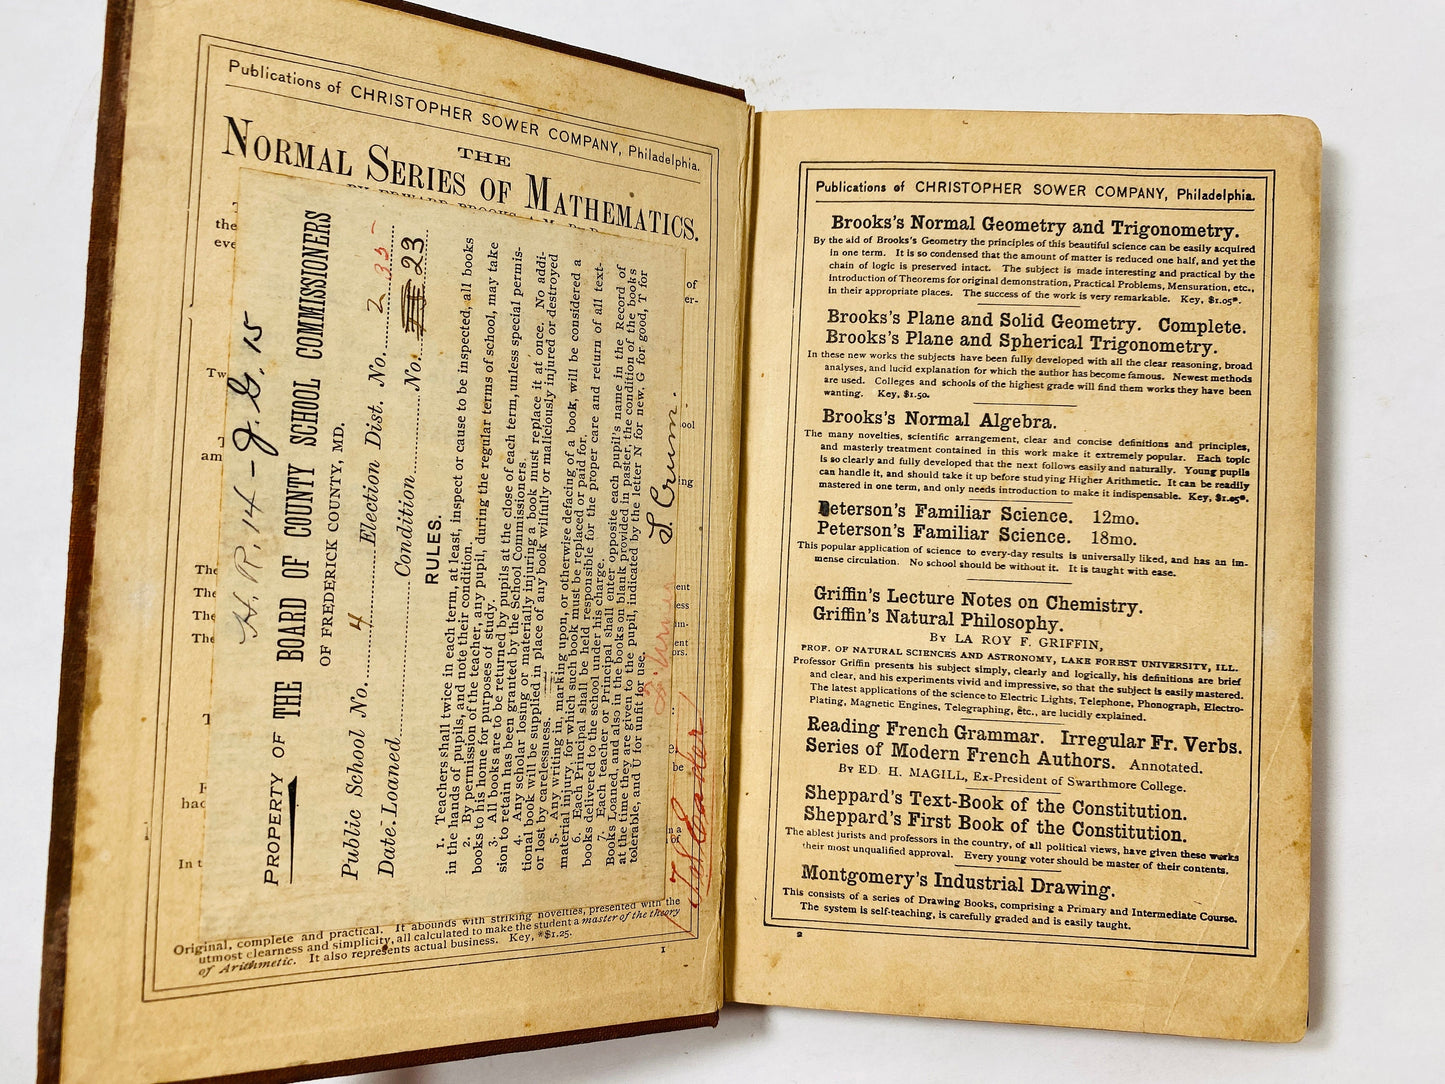 Publications of CHRISTOPHER SOWER COMPANY, Philadelphia.
THE
NORMAL SERIES OF MATHEMATICS.
the
eve
Tw
am
The
The
The
The
had
In t
of
er-
ool
ing
ent
ess
im-
ent
ors.
be
in a
of
H. R. 14 - J. G. 15
PROPERTY OF THE BOARD OF COUNTY SCHOOL COMMISSIONERS
OF FREDERICK COUNTY, MD.
Public School No. 4 Election Dist. No. 2 35
Date Loaned Condition No. 23
RULES.
1. Teachers shall twice in each term, at least, inspect or cause to be inspected, all books
in the hands of pupils, and note their condition.
2. By permission of the teacher, any pupil, during the regular terms of school, may take
books to his home for purposes of study.
3. All books are to be returned by pupils at the close of each term, unless special permis-
sion to retain has been granted by the School Commissioners.
4. Any scholar losing or materially injuring a book must replace it at once. No addi-
tional book will be supplied in place of any book wilfully or maliciously injured or destroyed
or lost by carelessness.
5. Any writing in, marking upon, or otherwise defacing of a book, will be considered a
material injury, for which such book must be replaced or paid for.
6. Each Principal shall be held responsible for the proper care and return of all text-
books delivered to the school under his charge.
7. Each teacher or Principal shall enter opposite each pupil's name in the Record of
Books Loaned, and also in the books on blank provided in paster, the condition of the books
at the time they are given to the pupil, indicated by the letter N for new, G for good, T for
tolerable, and U for unfit for use.
S. Crum.
Original, complete and practical. It abounds with striking novelties, presented with the
utmost clearness and simplicity, all calculated to make the student a master of the theory
of Arithmetic. It also represents actual business. Key, *$1.25.
1
Publications of CHRISTOPHER SOWER COMPANY, Philadelphia.
Brooks's Normal Geometry and Trigonometry.
By the aid of Brooks's Geometry the principles of this beautiful science can be easily acquired
in one term. It is so condensed that the amount of matter is reduced one half, and yet the
chain of logic is preserved intact. The subject is made interesting and practical by the
introduction of Theorems for original demonstration, Practical Problems, Mensuration, etc.,
in their appropriate places. The success of the work is very remarkable. Key, $1.05*.
Brooks's Plane and Solid Geometry. Complete.
Brooks's Plane and Spherical Trigonometry.
In these new works the subjects have been fully developed with all the clear reasoning, broad
analyses, and lucid explanation for which the author has become famous. Newest methods
are used. Colleges and schools of the highest grade will find them works they have been
wanting. Key, $1.50.
Brooks's Normal Algebra.
The many novelties, scientific arrangement, clear and concise definitions and principles,
and masterly treatment contained in this work make it extremely popular. Each topic
is so clearly and fully developed that the next follows easily and naturally. Young pupils
can handle it, and should take it up before studying Higher Arithmetic. It can be readily
mastered in one term, and only needs introduction to make it indispensable. Key, $1.05*.
Peterson's Familiar Science. 12mo.
Peterson's Familiar Science. 18mo.
This popular application of science to every-day results is universally liked, and has an im-
mense circulation. No school should be without it. It is taught with ease.
Griffin's Lecture Notes on Chemistry.
Griffin's Natural Philosophy.
BY LA ROY F. GRIFFIN,
PROF. OF NATURAL SCIENCES AND ASTRONOMY, LAKE FOREST UNIVERSITY, ILL.
Professor Griffin presents his subject simply, clearly and logically, his definitions are brief
and clear, and his experiments vivid and impressive, so that the subject is easily mastered.
The latest applications of the science to Electric Lights, Telephone, Phonograph, Electro-
Plating, Magnetic Engines, Telegraphing, etc., are lucidly explained.
Reading French Grammar. Irregular Fr. Verbs.
Series of Modern French Authors. Annotated.
BY ED. H. MAGILL, Ex-President of Swarthmore College.
Sheppard's Text-Book of the Constitution.
Sheppard's First Book of the Constitution.
The ablest jurists and professors in the country, of all political views, have given these works
their most unqualified approval. Every young voter should be master of their contents.
Montgomery's Industrial Drawing.
This consists of a series of Drawing Books, comprising a Primary and Intermediate Course.
The system is self-teaching, is carefully graded and is easily taught.
2